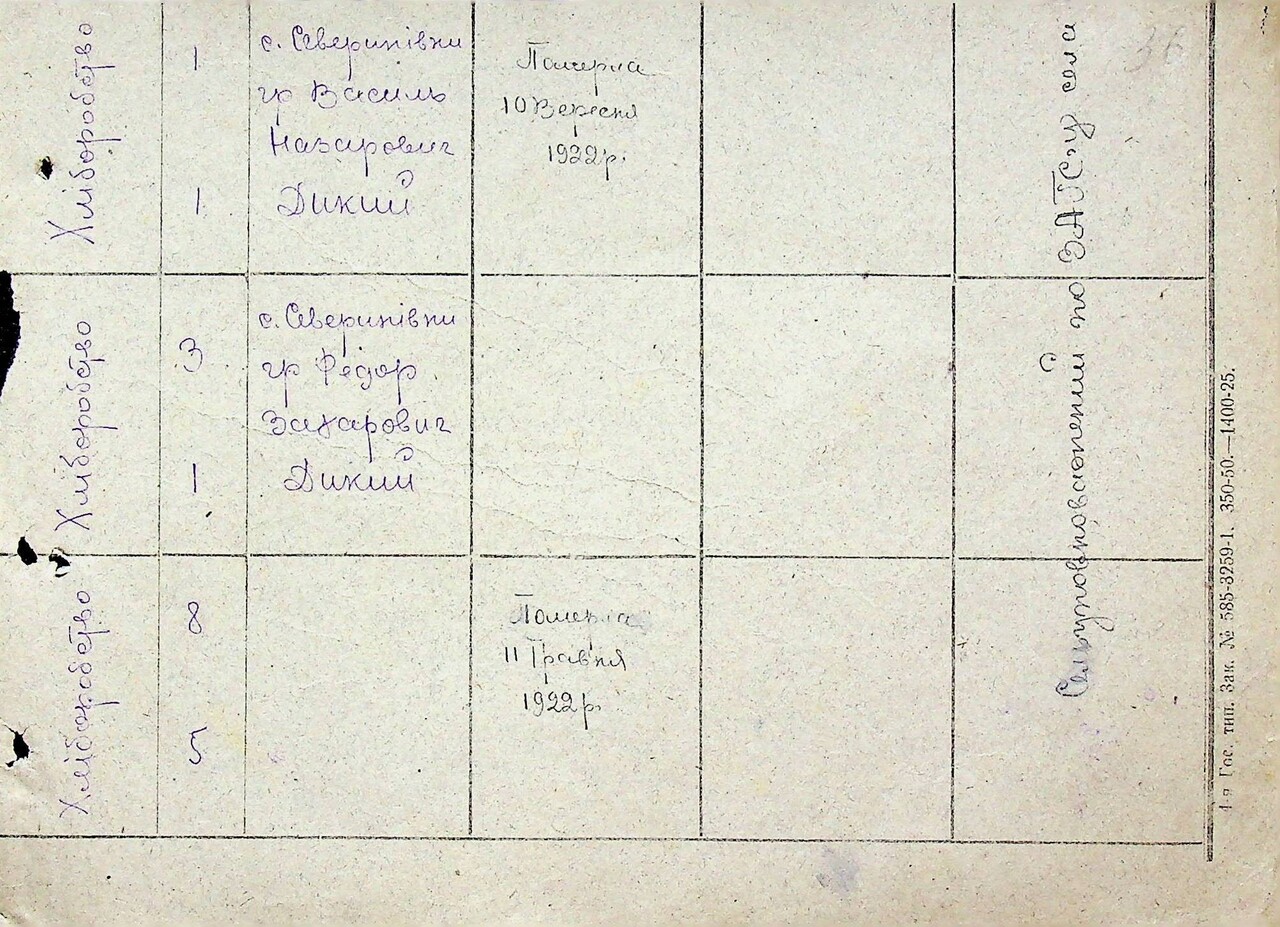 Хліборобство
1
1
с. Северинівки
гр Василь
Назарович
Дикий
Померла
10 Вересня
1922 р.
36
Хліборобство
3
1
с. Северинівки
гр Федор
Захарович
Дикий
Хліборобство
8
5
Померла
11 Травня
1922 р.
по ЗАГС'у села
4-я Гос. тип. Зак. № 585-3259-1. 350-50.—1400-25.